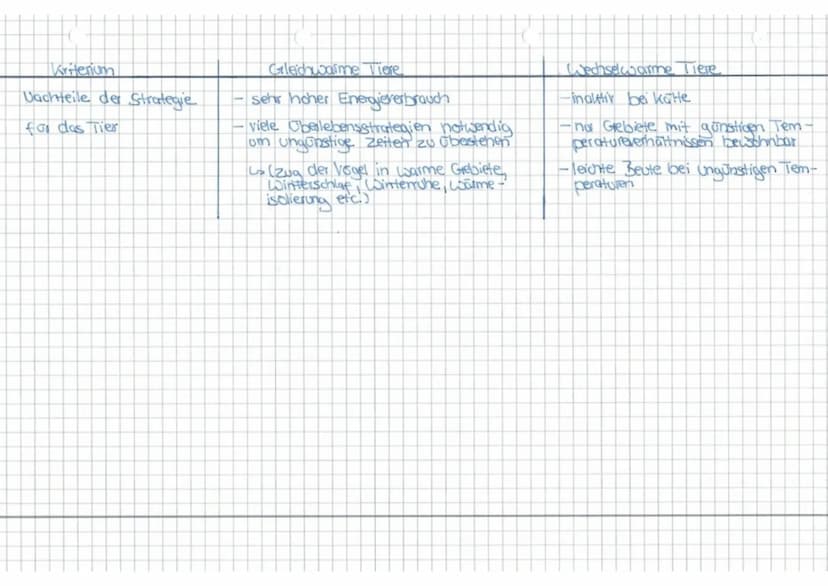 Kriterium
Gleichwarme Tiere
Wechselwarme Tiere
Nachteile der Strategie
für das Tier
- sehr hoher Energieverbrauch
- viele Überlebensstrategien notwendig
um ungünstige Zeiten zu überstehen
↳ (Zug der Vögel in warme Gebiete,
Winterschlaf, Winterruhe, Wärme-
isolierung etc.)
- inaktiv bei Kälte
- nur Gebiete mit günstigen Tem-
peraturverhältnissen bewohnbar
- leichte Beute bei ungünstigen Tem-
peraturen